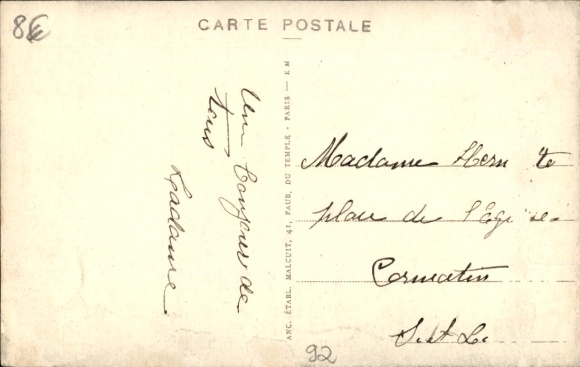 8€
CARTE POSTALE
Un bonjour de
tous
Madame
place de l'Eglise
Cormatin
S. et L.
ANC. ÉTABL. MALCUIT, 41, FAUB. DU TEMPLE - PARIS — EM
92